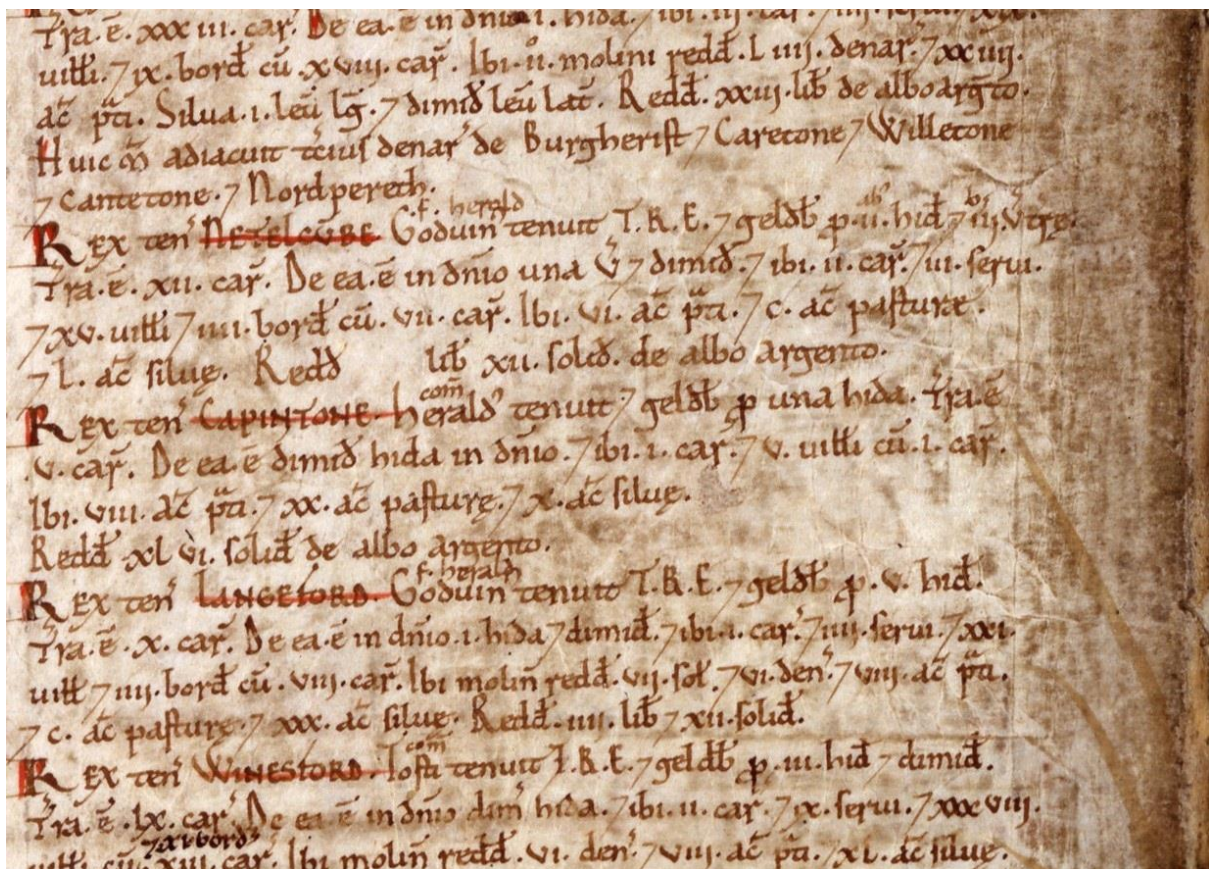 Tra.ē. xxxiii. car̄. De ea.ē in dn̄io.i. hida.⁊ ibi.iii.car̄.⁊
uilłi.⁊ ix.bord̄ cū.xviii.car̄. Ibi.ii.molini redd̄.L iiii.denar̄.⁊ xxiiii.
ac̄ p̄ti. Silua.i.leū lḡ.⁊ dimid̄ leū lat̄. Redd̄.xxiii.lib̄ de albo arḡto.
Huic m̄ adiacuit t̄cius denar̄ de Burgherist ⁊ Caretone ⁊ Willetone
⁊ Cantetone.⁊ Nordpereth.
f. herald
REX ten̄ NETELCUBE Goduin tenuit T.R.E.⁊ geldb̄ p.ii.hid̄ ⁊ iii.v̄ træ.
Tra.ē.xii.car̄. De ea.ē in dn̄io una v̄ ⁊ dimid̄.⁊ ibi.ii.car̄.⁊ iii.serui.
⁊ xv.uilłi ⁊ iiii.bord̄ cū.vii.car̄. Ibi.vi.ac̄ p̄ti.⁊ c.ac̄ pasturæ.
⁊ L.ac̄ siluę. Redd̄ lib̄ xii.solid̄.de albo argento.
com̄
REX ten̄ CAPINTONE. Herald̄ tenuit ⁊ geldb̄ p una hida. Tra.ē
v.car̄. De ea.ē dimid̄ hida in dn̄io.⁊ ibi.i.car̄.⁊ v.uilłi cū.i.car̄.
Ibi.viii.ac̄ p̄ti.⁊ xx.ac̄ pasturę.⁊ x.ac̄ siluę.
Redd̄ xl vi.solid̄ de albo argento.
f. herald
REX ten̄ LANGEFORD. Goduin tenuit T.R.E.⁊ geldb̄ p.v.hid̄.
Tra.ē.x.car̄. De ea.ē in dn̄io.i.hida ⁊ dimid̄.⁊ ibi.i.car̄.⁊ iiii.serui.⁊ xxi.
uilł ⁊ iiii.bord̄ cū.viii.car̄. Ibi molin̄ redd̄.vii.sol.⁊ vi.den̄.⁊ viii.ac̄ p̄ti.
⁊ c.ac̄ pasturę.⁊ xxx.ac̄ siluę. Redd̄.iiii.lib̄ ⁊ xii.solid̄.
com̄
REX ten̄ WINESFORD. Tosti tenuit T.R.E.⁊ geldb̄ p.iii.hid̄ ⁊ dimid̄.
Tra.ē.lx.car̄. De ea ē in dn̄io dim̄ hida.⁊ ibi.ii.car̄.⁊ ix.serui.⁊ xxxviii.
⁊ xi bord̄
uilłi cū.xiii.car̄. Ibi molin̄ redd̄.vi.den̄.⁊ viii.ac̄ p̄ti.⁊ xl.ac̄ siluę.